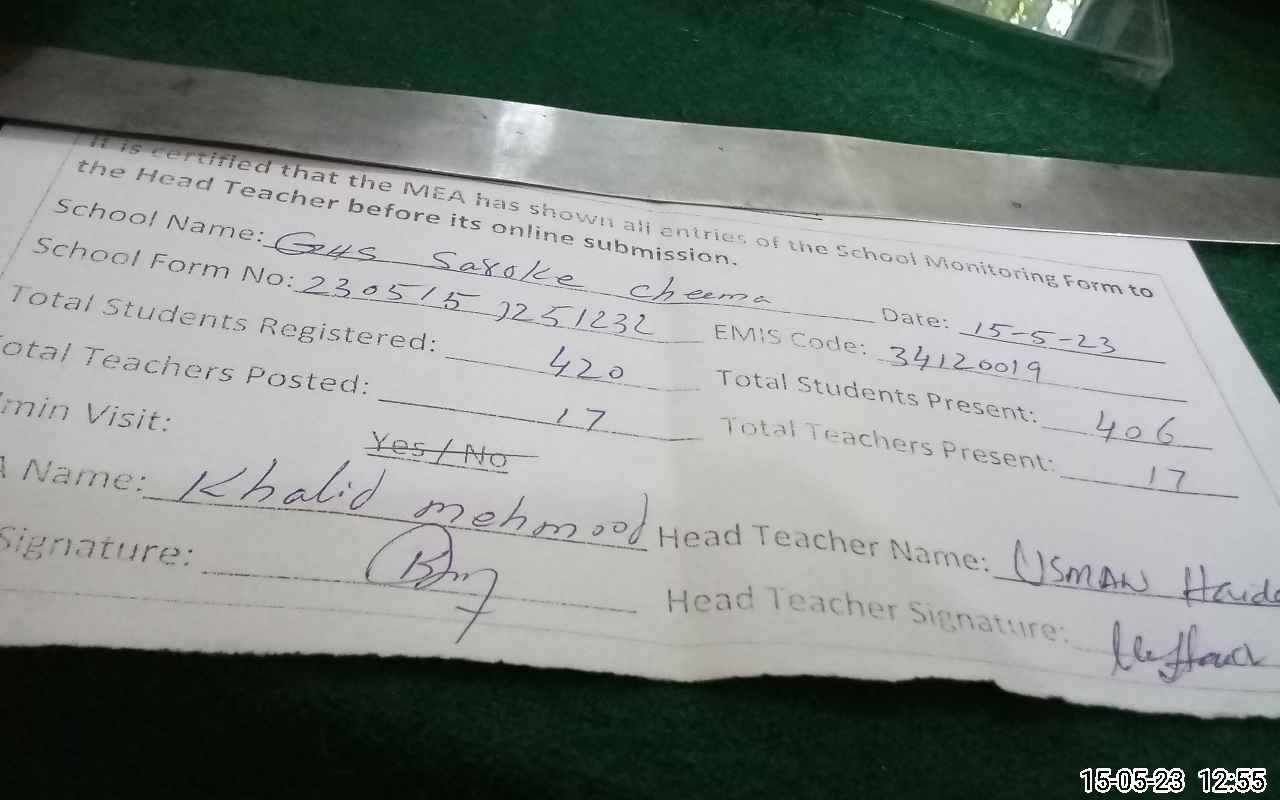 It is certified that the MEA has shown all entries of the School Monitoring Form to
the Head Teacher before its online submission.
School Name: GHS Saroke cheema Date: 15-5-23
School Form No: 230515 1251232 EMIS Code: 34120019
Total Students Registered: 420 Total Students Present: 406
otal Teachers Posted: 17 Total Teachers Present: 17
min Visit: Yes / No
A Name: Khalid mehmood Head Teacher Name: USMAN Haide
Signature: Head Teacher Signature:
15-05-23 12:55